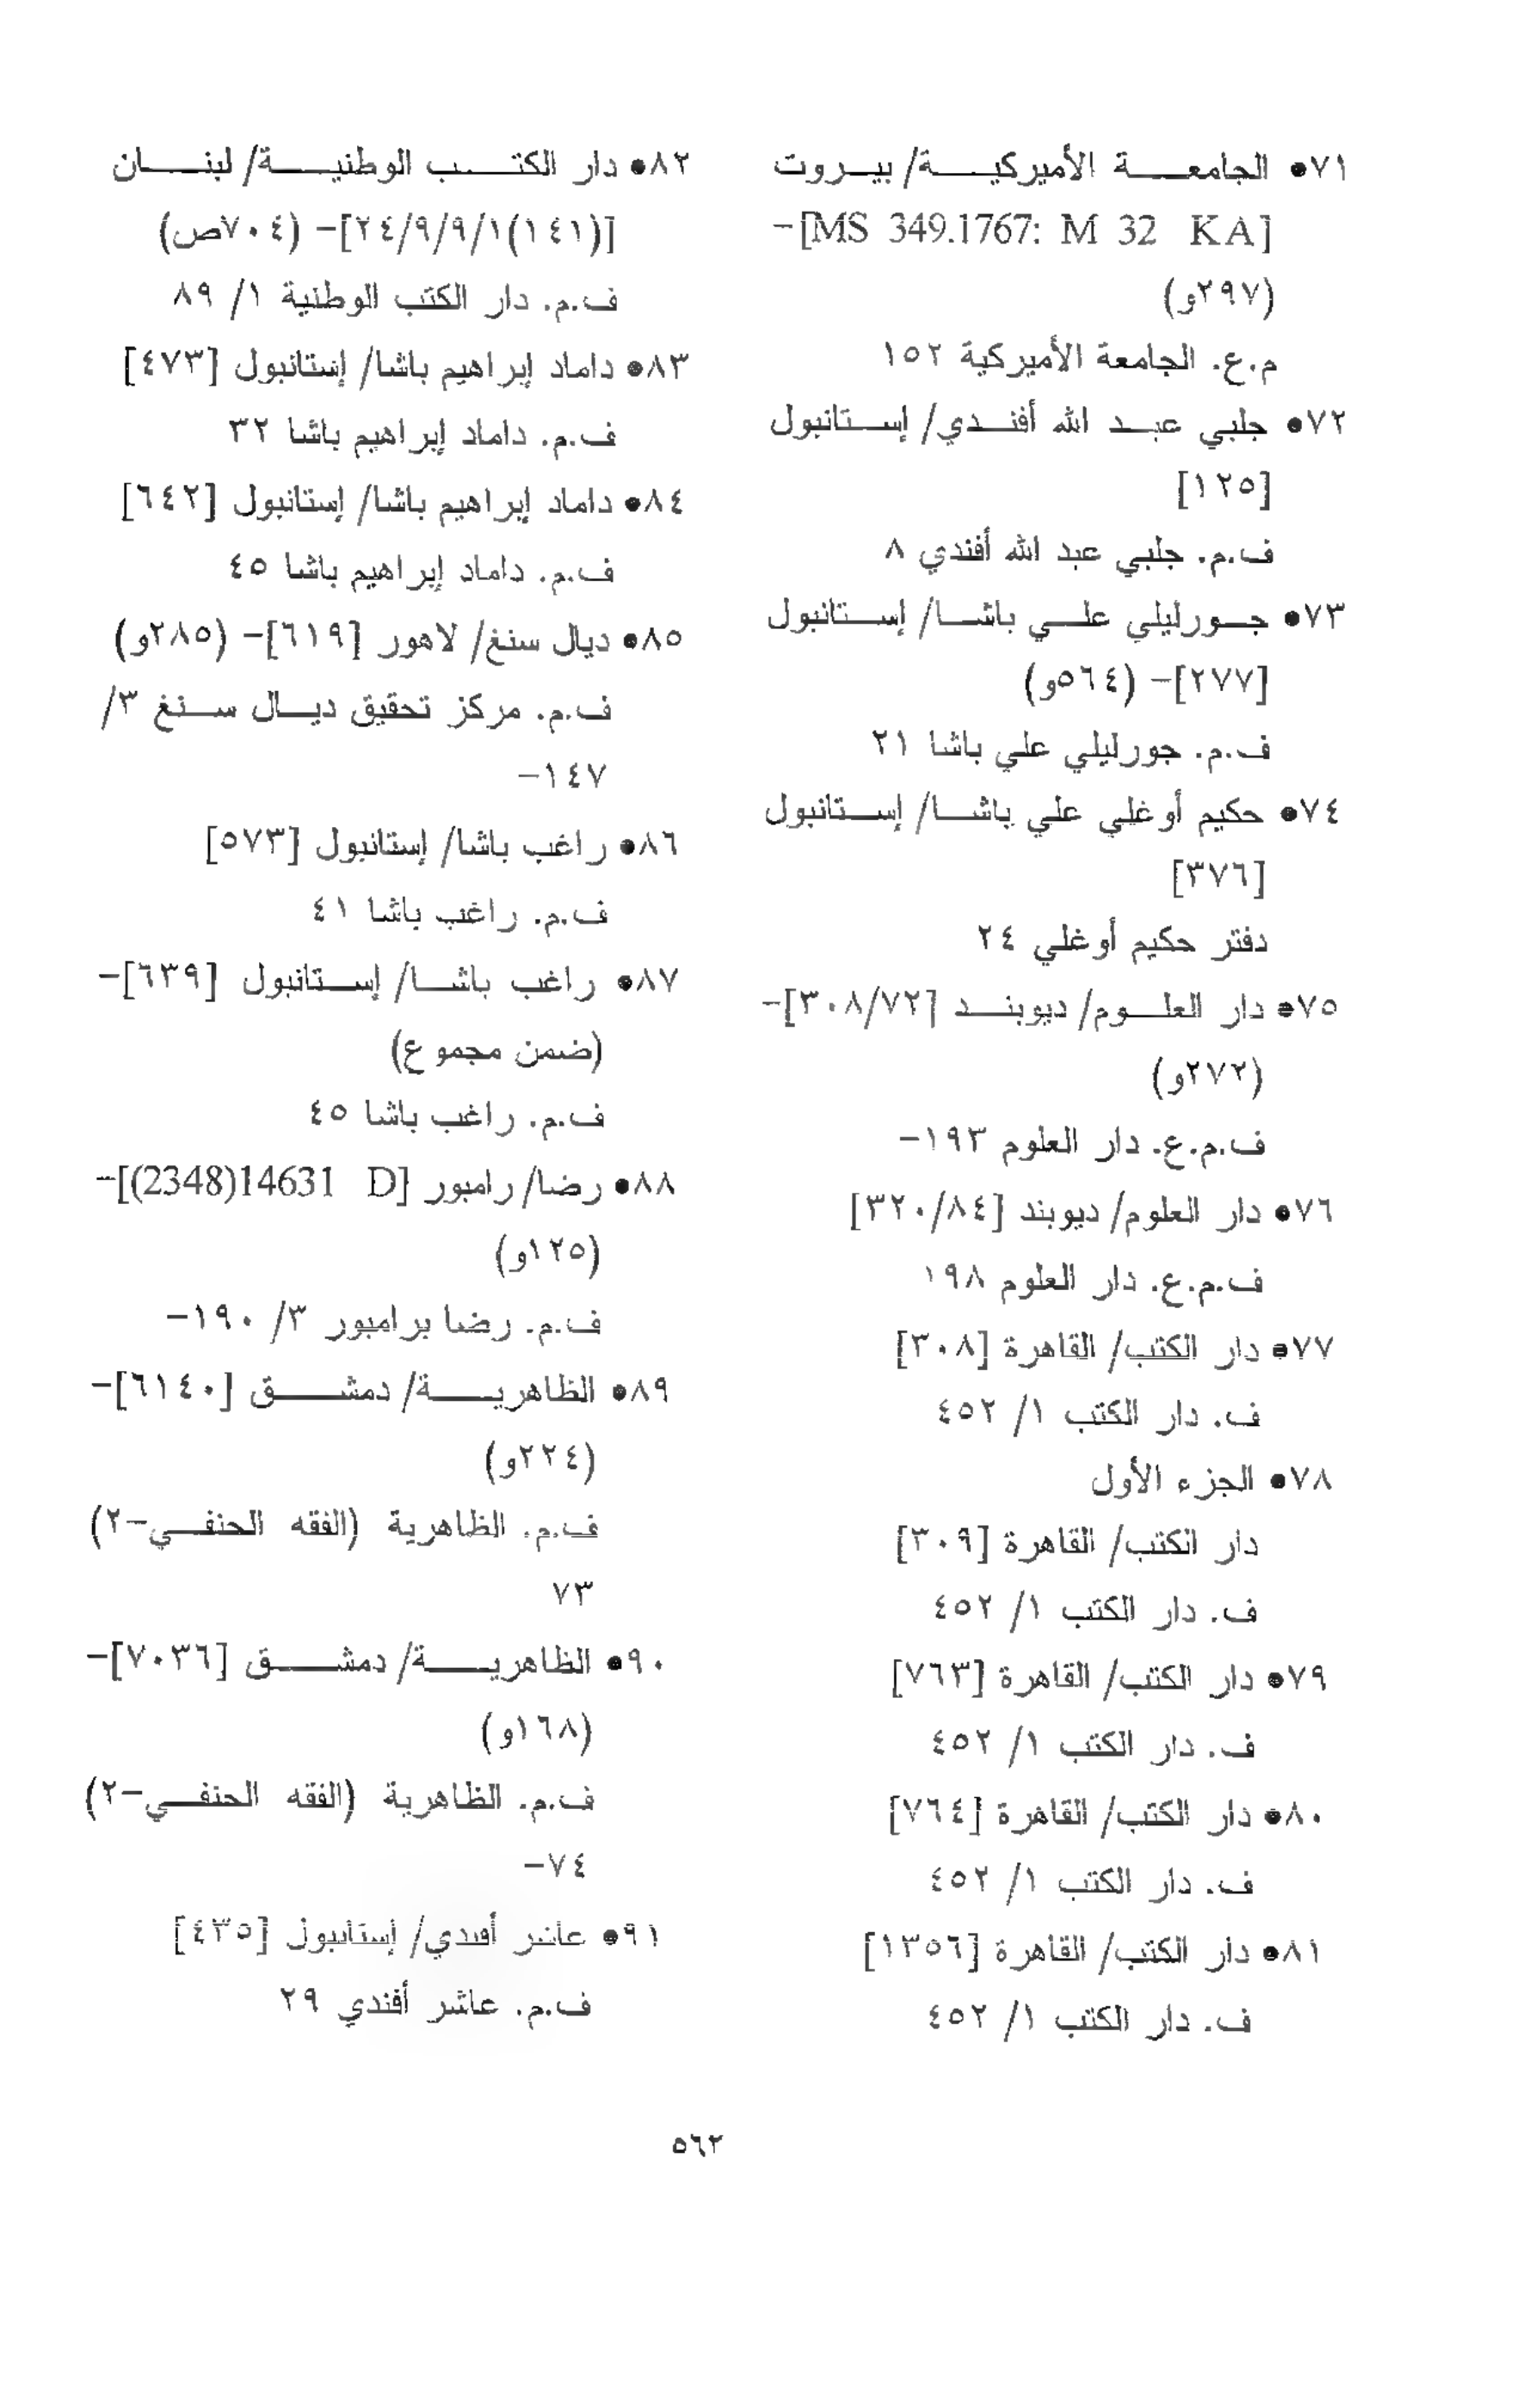 ٧١• الجامعة الأميركية/ بيروت
[MS 349.1767: M 32 KA]-
(٢٩٧و)
م.ع. الجامعة الأميركية ١٥٢
٧٢• جلبي عبد الله أفندي/ إستانبول
[١٢٥]
ف.م. جلبي عبد الله أفندي ٨
٧٣• جورليلي علي باشا/ إستانبول
[٢٧٧]- (٥٦٤و)
ف.م. جورليلي علي باشا ٢١
٧٤• حكيم أوغلي علي باشا/ إستانبول
[٣٧٦]
دفتر حكيم أوغلي ٢٤
٧٥• دار العلوم/ ديوبند [٣٠٨/٧٢]-
(٢٧٢و)
ف.م.ع. دار العلوم ١٩٣-
٧٦• دار العلوم/ ديوبند [٣٢٠/٨٤]
ف.م.ع. دار العلوم ١٩٨
٧٧• دار الكتب/ القاهرة [٣٠٨]
ف. دار الكتب ١/ ٤٥٢
٧٨• الجزء الأول
دار الكتب/ القاهرة [٣٠٩]
ف. دار الكتب ١/ ٤٥٢
٧٩• دار الكتب/ القاهرة [٧٦٣]
ف. دار الكتب ١/ ٤٥٢
٨٠• دار الكتب/ القاهرة [٧٦٤]
ف. دار الكتب ١/ ٤٥٢
٨١• دار الكتب/ القاهرة [١٣٥٦]
ف. دار الكتب ١/ ٤٥٢
٨٢• دار الكتب الوطنية/ لبنان
[(١٤١)٢٤/٩/٩/١]- (٧٠٤ص)
ف.م. دار الكتب الوطنية ١/ ٨٩
٨٣• داماد إبراهيم باشا/ إستانبول [٤٧٣]
ف.م. داماد إبراهيم باشا ٣٢
٨٤• داماد إبراهيم باشا/ إستانبول [٦٤٢]
ف.م. داماد إبراهيم باشا ٤٥
٨٥• ديال سنغ/ لاهور [٦١٩]- (٢٨٥و)
ف.م. مركز تحقيق ديال سنغ ٣/
١٤٧-
٨٦• راغب باشا/ إستانبول [٥٧٣]
ف.م. راغب باشا ٤١
٨٧• راغب باشا/ إستانبول [٦٣٩]-
(ضمن مجموع)
ف.م. راغب باشا ٤٥
٨٨• رضا/ رامبور [(2348)14631 D]-
(١٢٥و)
ف.م. رضا برامبور ٣/ ١٩٠-
٨٩• الظاهرية/ دمشق [٦١٤٠]-
(٢٢٤و)
ف.م. الظاهرية (الفقه الحنفي-٢)
٧٣
٩٠• الظاهرية/ دمشق [٧٠٣٦]-
(١٦٨و)
ف.م. الظاهرية (الفقه الحنفي-٢)
٧٤-
٩١• عاشر أفندي/ إستانبول [٤٣٥]
ف.م. عاشر أفندي ٢٩
٥٦٢